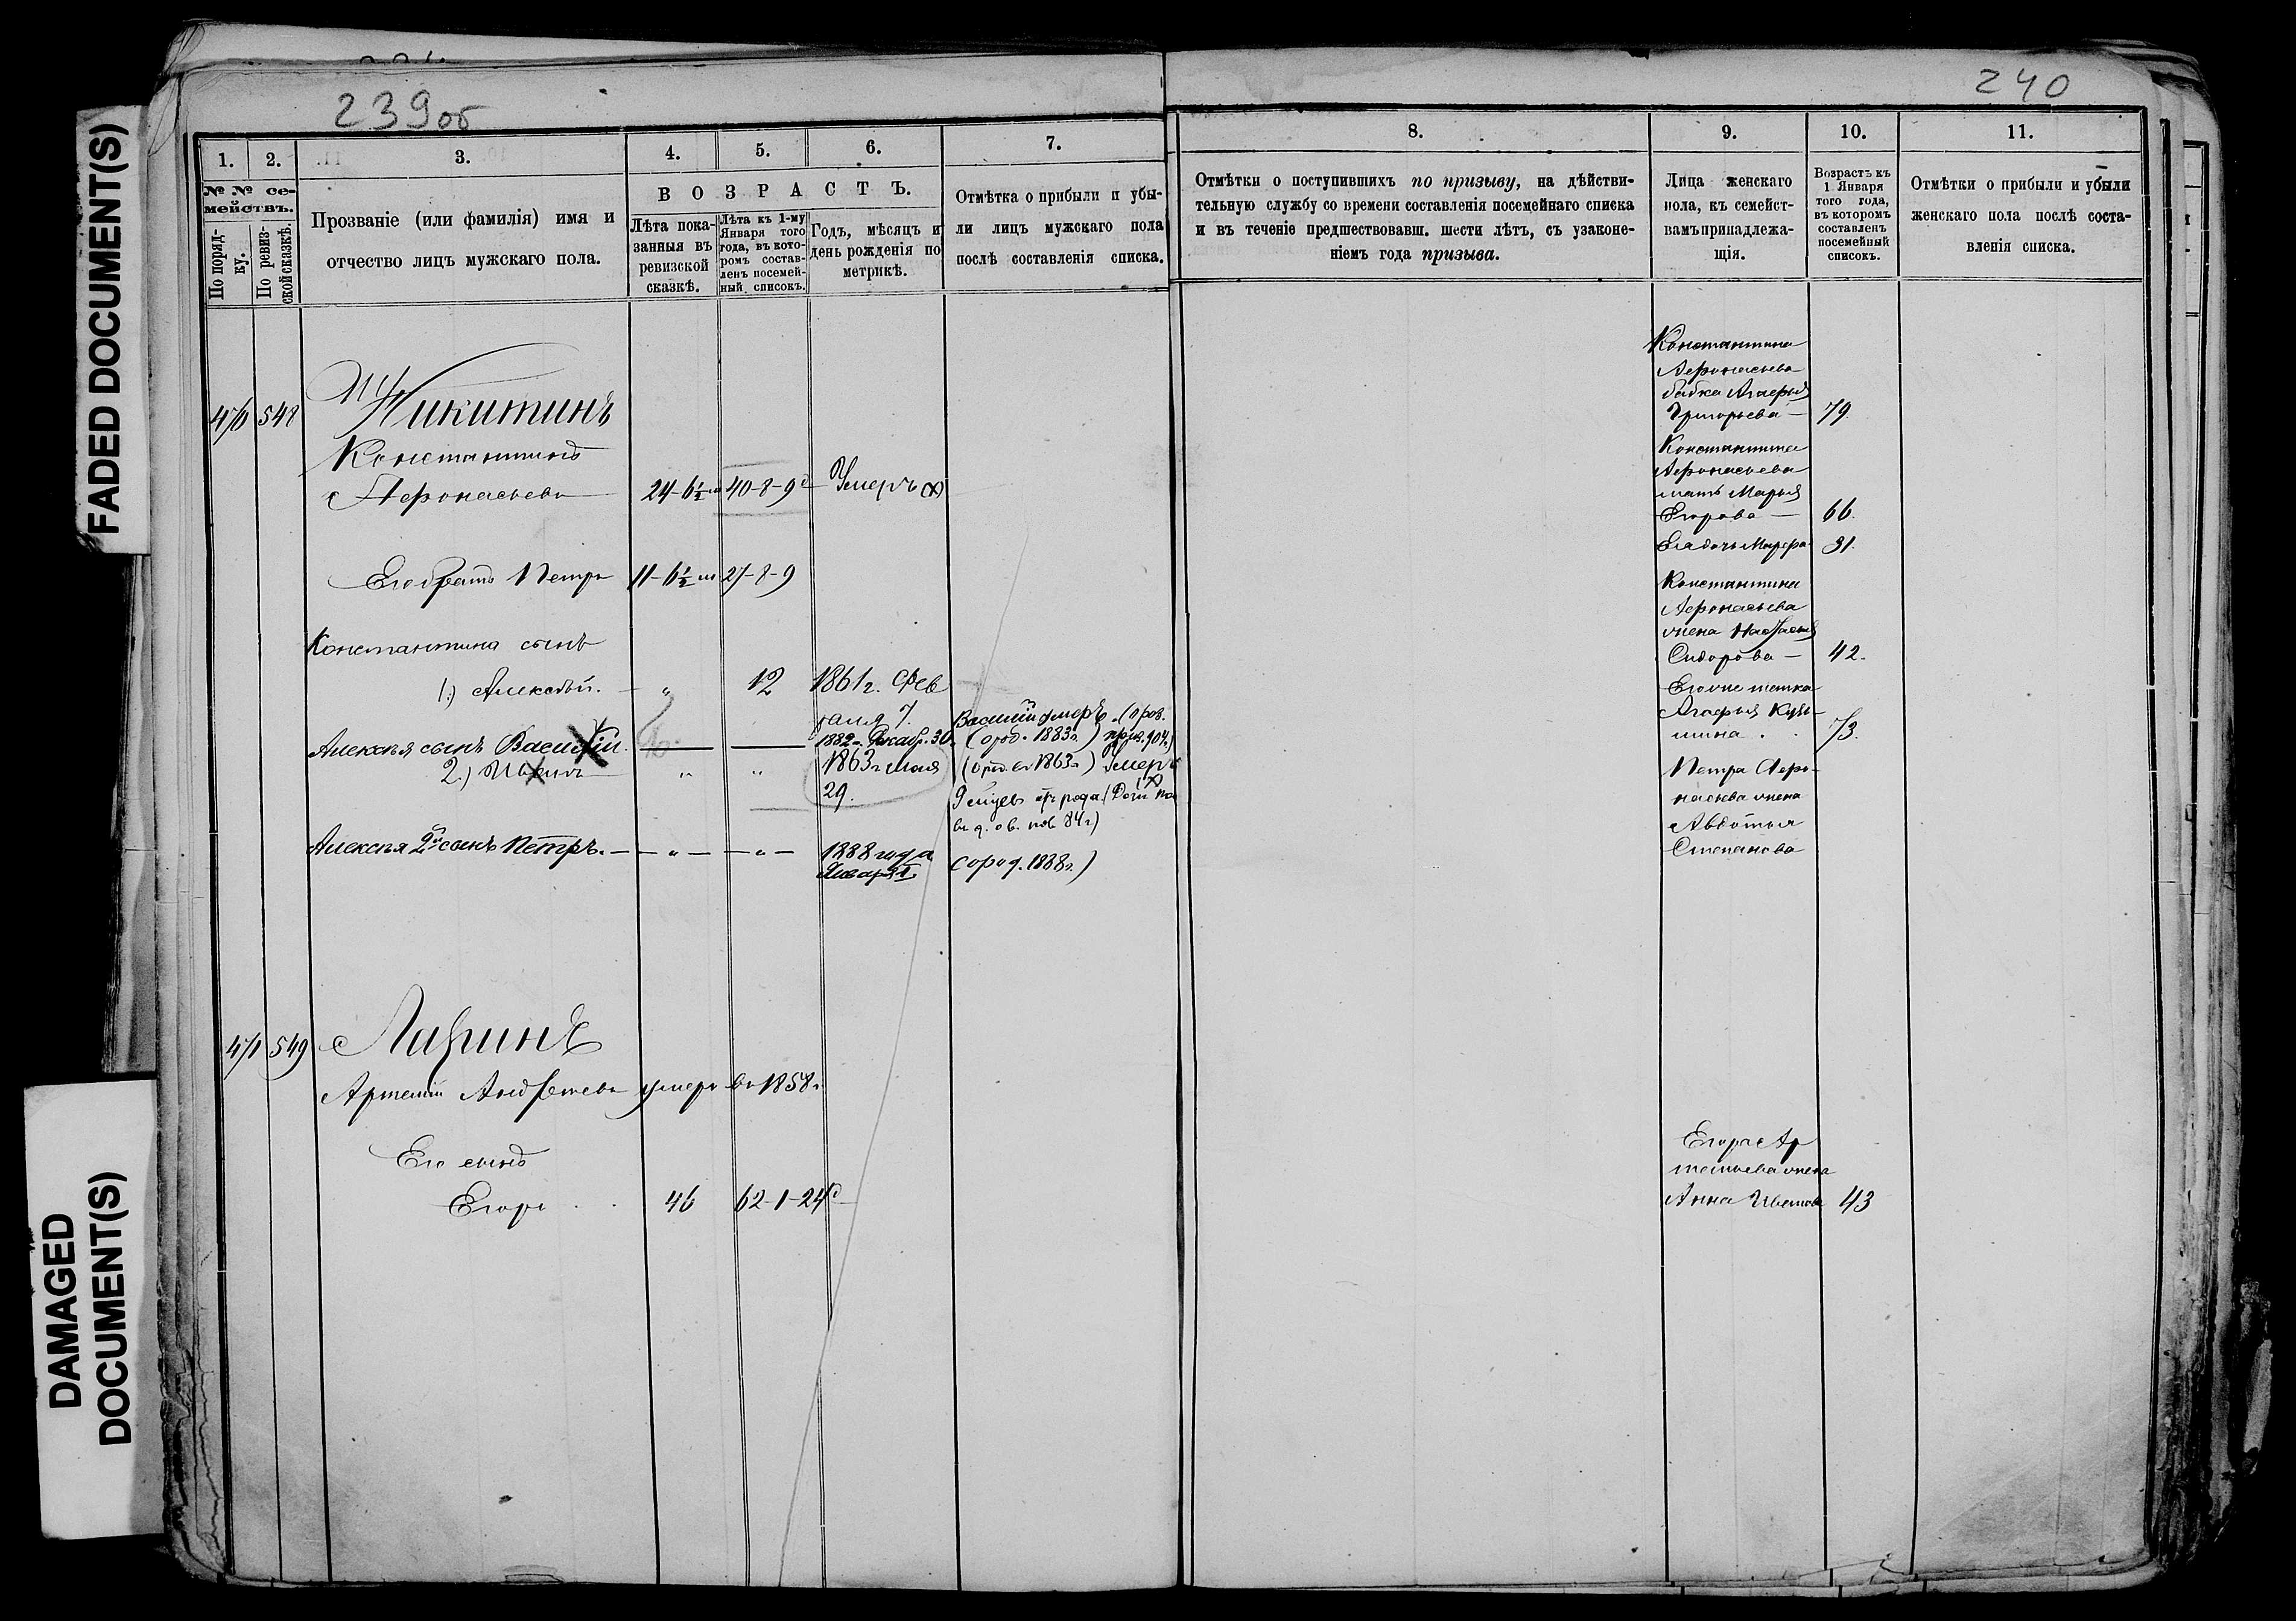 FADED DOCUMENT(S)
DAMAGED
DOCUMENT(S)
239об
1.
2.
3.
4.
5.
6.
7.
№ № се-
мействъ.
По поряд-
ку.
По ревиз-
ской сказкѣ.
Прозваніе (или фамилія) имя и
отчество лицъ мужскаго пола.
ВОЗРАСТЪ.
Лѣта пока-
занныя въ
ревизской
сказкѣ.
Лѣта къ 1-му
Января того
года, въ кото-
ромъ состав-
ленъ посемей-
ный списокъ.
Годъ, мѣсяцъ и
день рожденія по
метрикѣ.
Отмѣтка о прибыли и убы-
ли лицъ мужскаго пола
послѣ составленія списка.
548 Никитинъ
Константинъ
Афонасьевъ 24-6½ 40-8-9 Умеръ
Его братъ Петръ 11-6½ 27-8-9
Константина сынъ
1.) Алексѣй. " 12 1861 г. Фев
раля 7.
Алексѣя сынъ Василій. 1882 г. Декабр. 30. Василій умеръ.
(о род. 1883 г.)
2.) " " 1863 г. Мая
29.
(1863 г.) умеръ
Алексѣя 2й сынъ Петръ. " " 1888 года
Января
о род. 1888 г.)
471 549 Ларинъ
Артемій Андреевъ умеръ въ 1858 г.
Его сынъ
Егоръ 46 62-1-24
240
8.
9.
10.
11.
Отмѣтки о поступившихъ по призыву, на дѣйстви-
тельную службу со времени составленія посемейнаго списка
и въ теченіе предшествовавш. шести лѣтъ, съ узаконе-
ніемъ года призыва.
Лица женскаго
пола, къ семейст-
вамъ принадлежа-
щія.
Возрастъ къ
1 Января
того года,
въ которомъ
составленъ
посемейный
списокъ.
Отмѣтки о прибыли и убыли
женскаго пола послѣ соста-
вленія списка.
Константина
Афонасьева
бабка Агафья
Григорьева 79.
Константина
Афонасьева
мать Марья
Егорова 66.
Ея дочь Марфа 31.
Константина
Афонасьева
жена Настасья
Сидорова 42.
Его же тетка
Агафья Кузь-
мина 73.
Петра Афо-
насьева жена
Авдотья
Степанова
Егора Ар
темьева жена
Анна Иванова 43